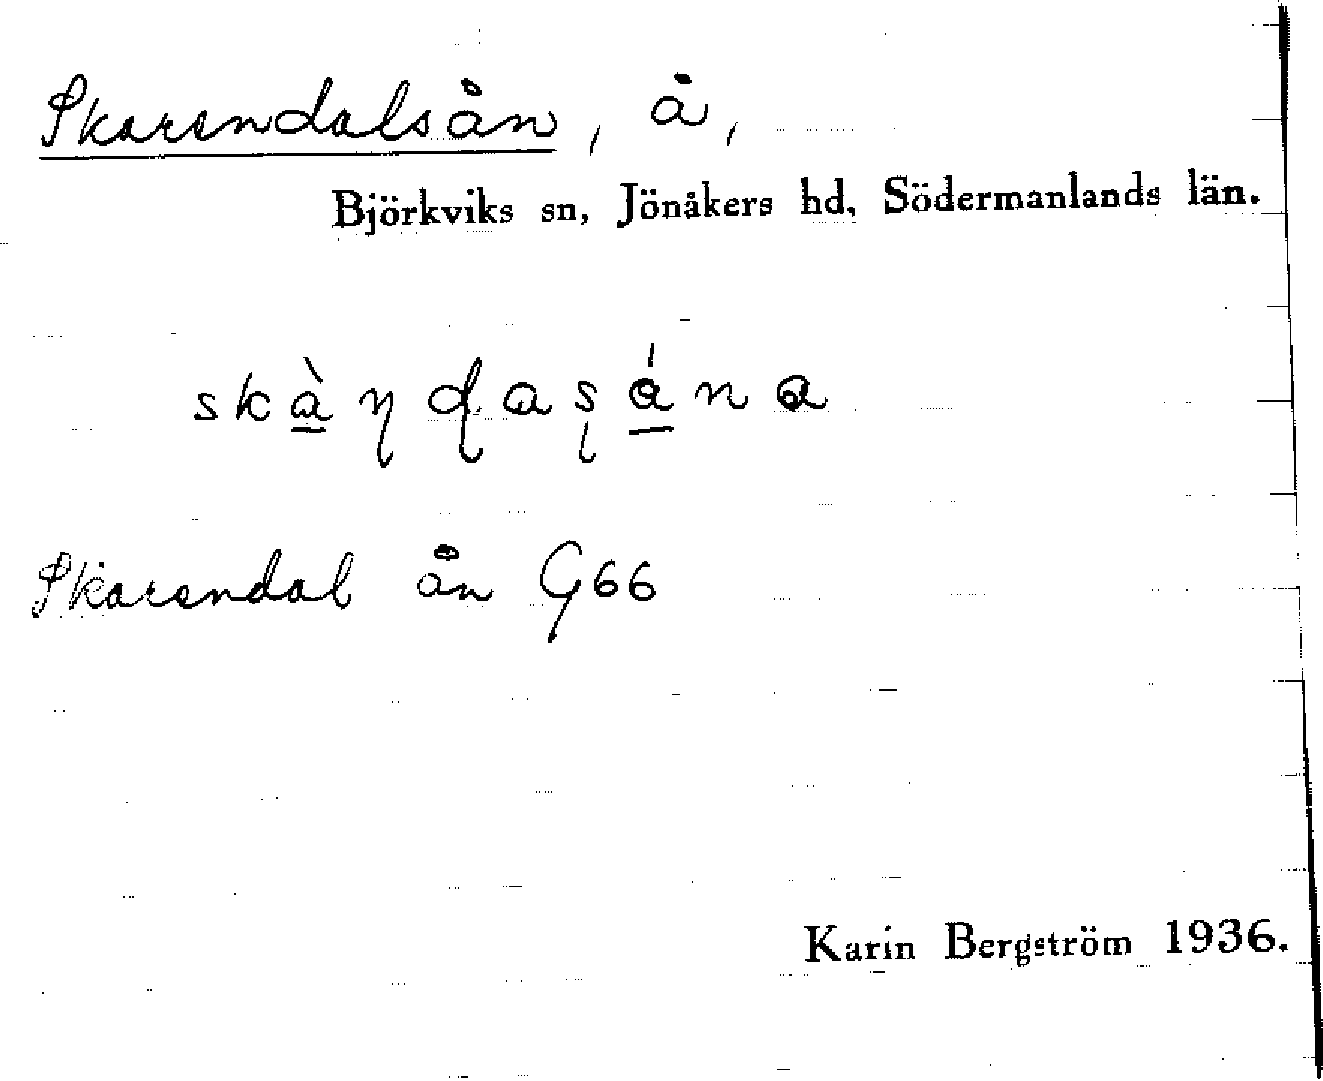 Skarendalsån, å,
Björkviks sn, Jönåkers hd, Södermanlands län.
skà̱ɳɖaʂá̱na
Skarendal ån G66
Karin Bergström 1936.